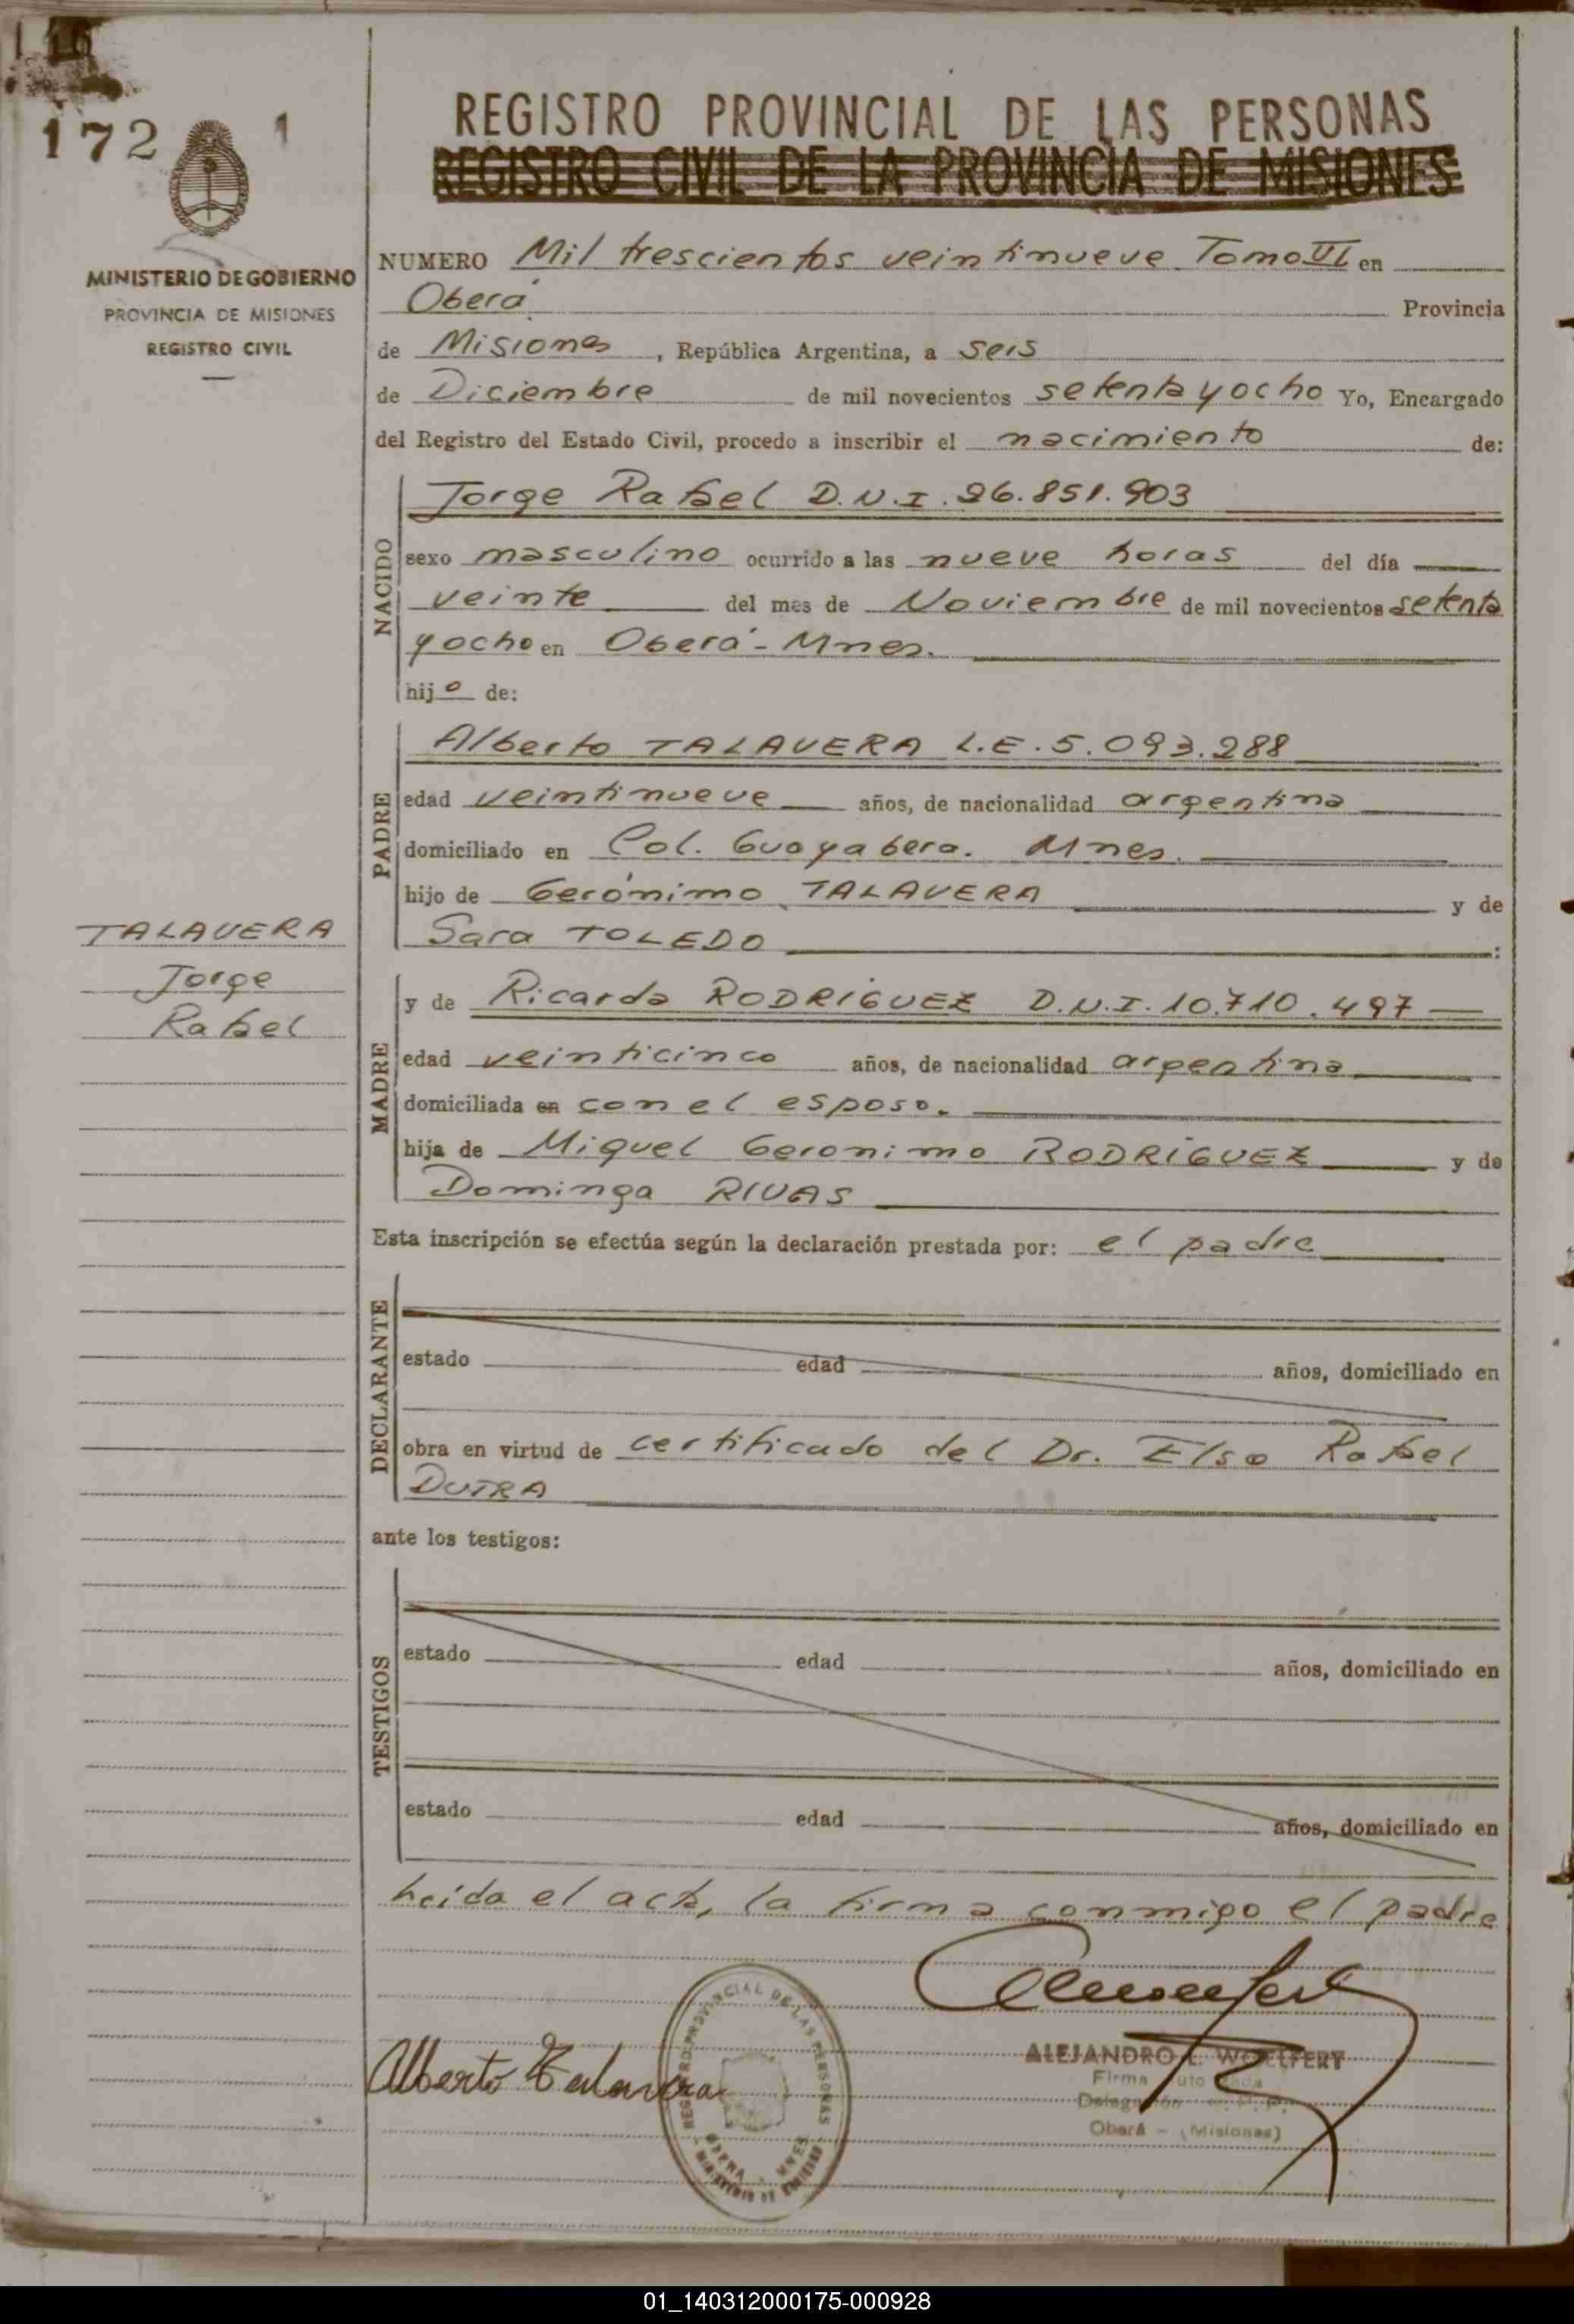 172
1
MINISTERIO DE GOBIERNO
PROVINCIA DE MISIONES
REGISTRO CIVIL
REGISTRO PROVINCIAL DE LAS PERSONAS
REGISTRO CIVIL DE LA PROVINCIA DE MISIONES
NUMERO Mil trescientos veintinueve Tomo VI en
Oberá Provincia
de Misiones, República Argentina, a seis
de Diciembre de mil novecientos setenta y ocho Yo, Encargado
del Registro del Estado Civil, procedo a inscribir el nacimiento de:
NACIDO
Jorge Rafael D.N.I. 26.851.903
sexo masculino ocurrido a las nueve horas del día
veinte del mes de Noviembre de mil novecientos setenta
y ocho en Oberá - Mnes.
hijo de:
PADRE
Alberto TALAVERA L.E. 5.093.288
edad veintinueve años, de nacionalidad argentina
domiciliado en Col. Guayabera. Mnes.
hijo de Gerónimo TALAVERA y de
Sara TOLEDO :
TALAVERA
Jorge
Rafael
MADRE
y de Ricarda RODRÍGUEZ D.N.I. 10.710.497
edad veinticinco años, de nacionalidad argentina
domiciliada en con el esposo.
hija de Miguel Geronimo RODRÍGUEZ y de
Dominga RIVAS
Esta inscripción se efectúa según la declaración prestada por: el padre
DECLARANTE
estado edad años, domiciliado en
obra en virtud de certificado del Dr. Elso Rafael
DUTRA
ante los testigos:
TESTIGOS
estado edad años, domiciliado en
estado edad años, domiciliado en
Leída el acta, la firma conmigo el padre
Alberto Talavera
REGISTRO PROVINCIAL DE LAS PERSONAS
ALEJANDRO L. WOELFERT
Firma
Oberá - (Misiones)
01_140312000175-000928